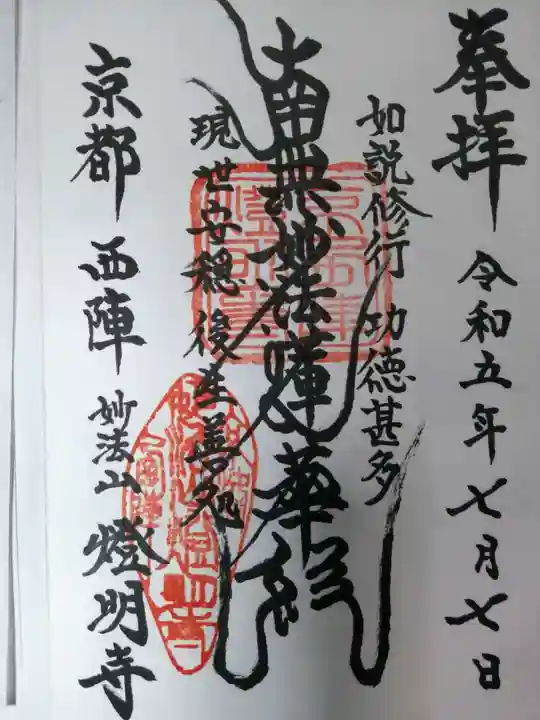 奉拝 令和五年七月七日
如説修行 功徳甚多
南無妙法蓮華経
現世安穏 後生善処
京都 西陣 妙法山 燈明寺